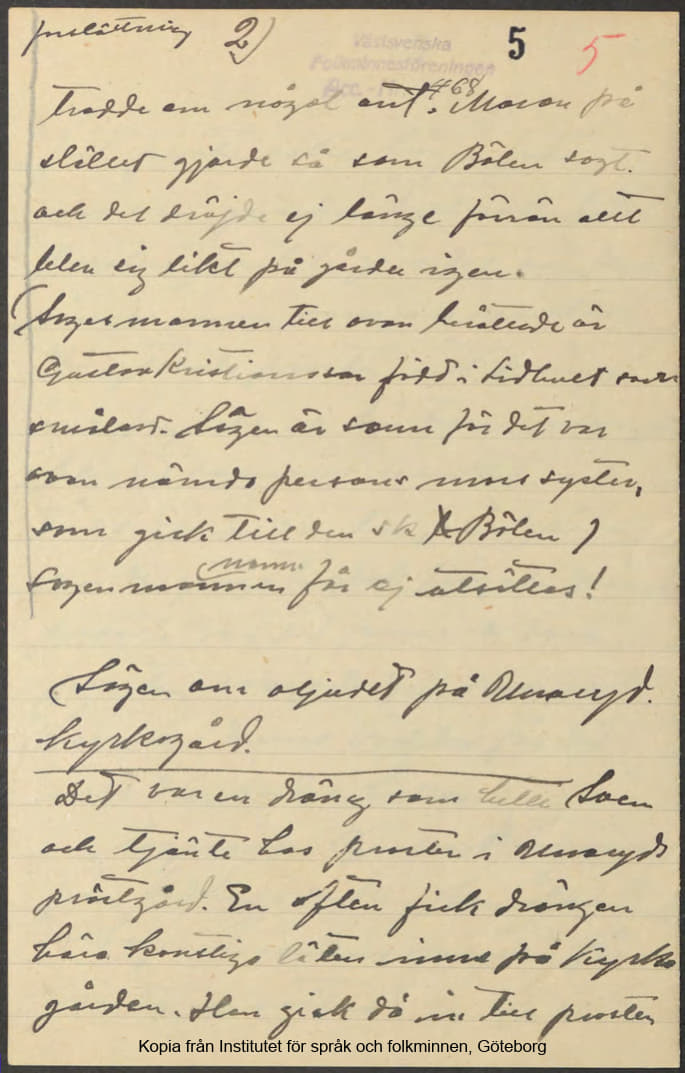 fortsättning 2) 5 5
Västsvenska
Folkminnesföreningen
Acc. - Nr 468
trodde om något ont. Moran på
stället gjorde så som Bölen sagt.
och det dröjde ej länge förrän allt
blev sig likt på gården igen.
(Sagesmannen till ovan berättade är
Gustav Kristiansson född i Lidhult
småland. Sägen är sann för det var
ovan nämnda persons mors syster,
som gick till den sk Bölen )
namn
Sagesmannen får ej utsättas!
Sägen om oljudet på Unnaryd.
kyrkogård.
Det var en dräng som hette Sven
och tjänte hos prosten i Unnaryds
prästgård. En afton fick drängen
höra konstiga läten inne på Kyrko
gården. Han gick då in till prosten
Kopia från Institutet för språk och folkminnen, Göteborg